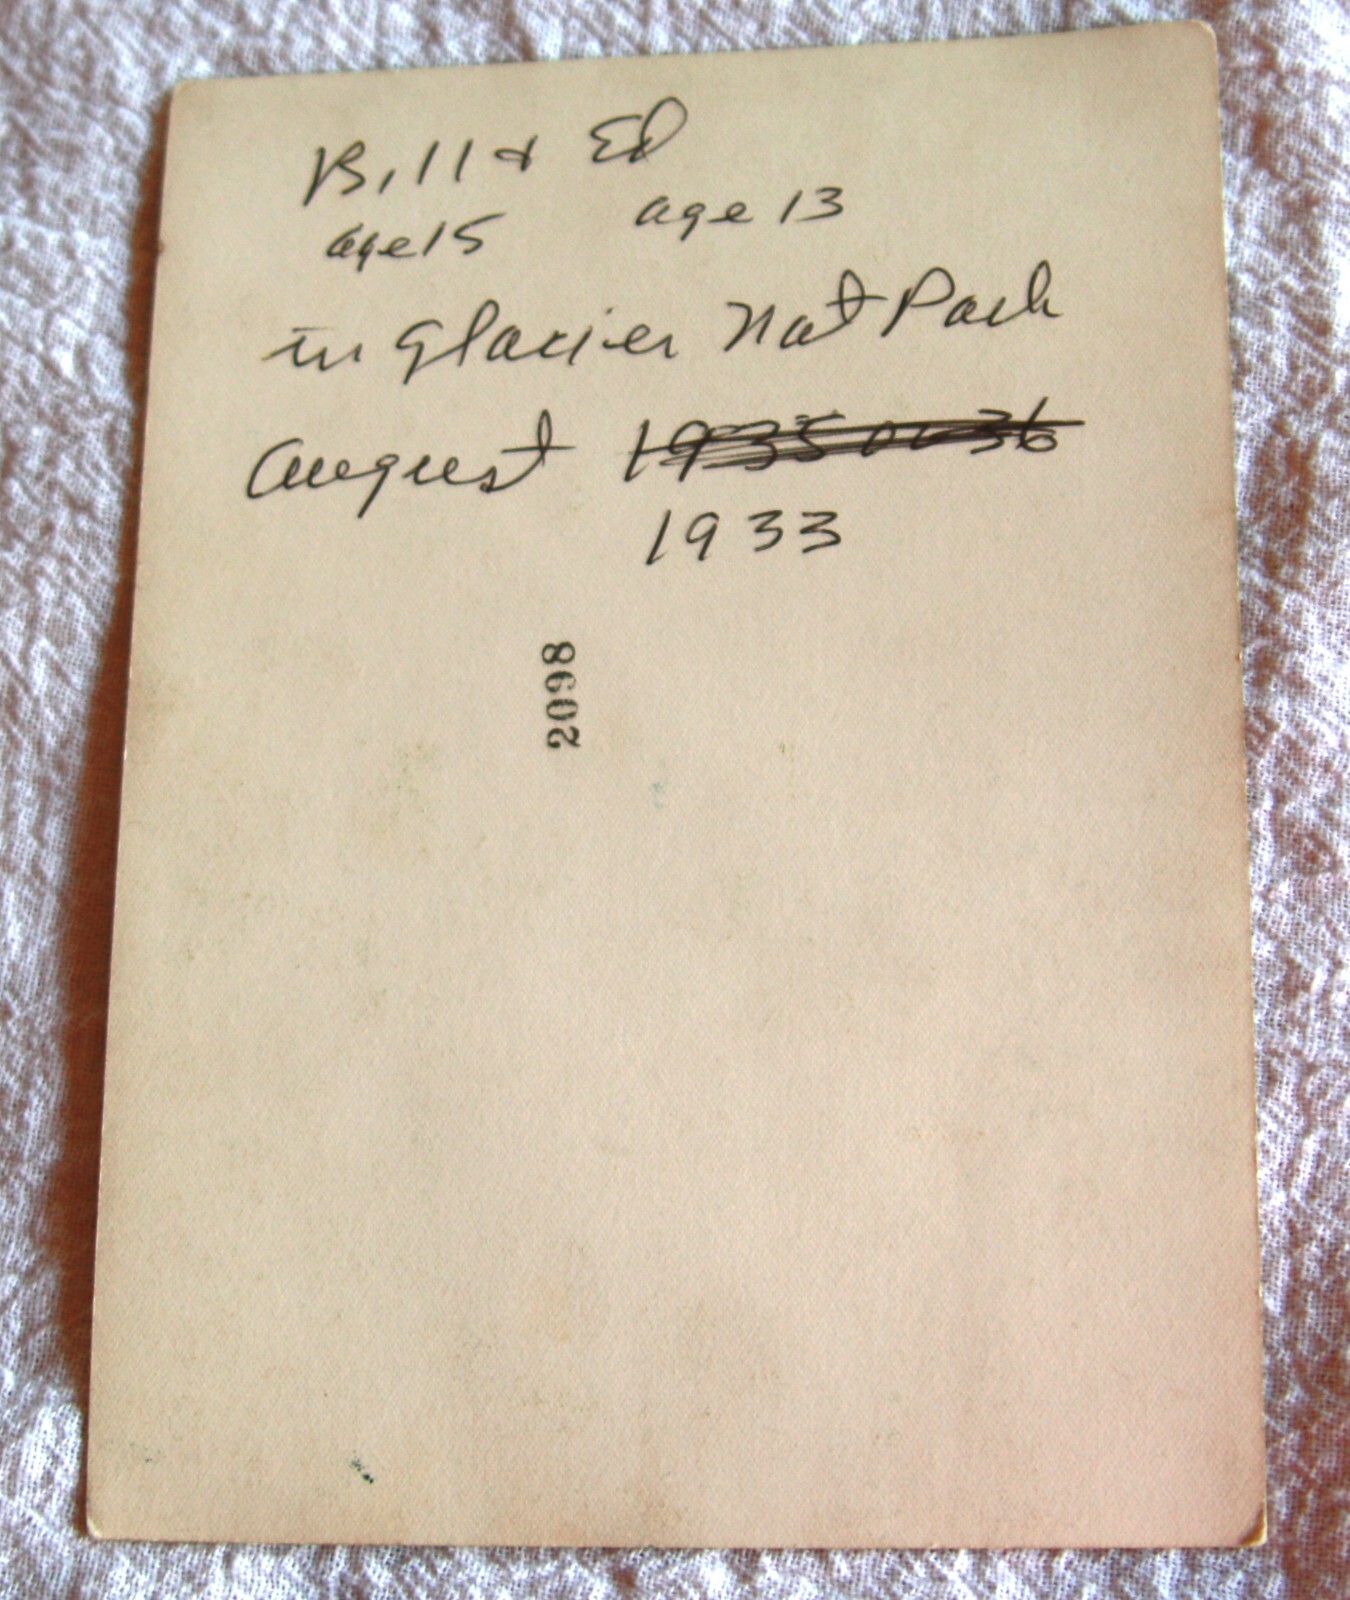 Bill & Ed
age 15 age 13
in Glacier Nat Park
August 1935 or 36
1933
2098